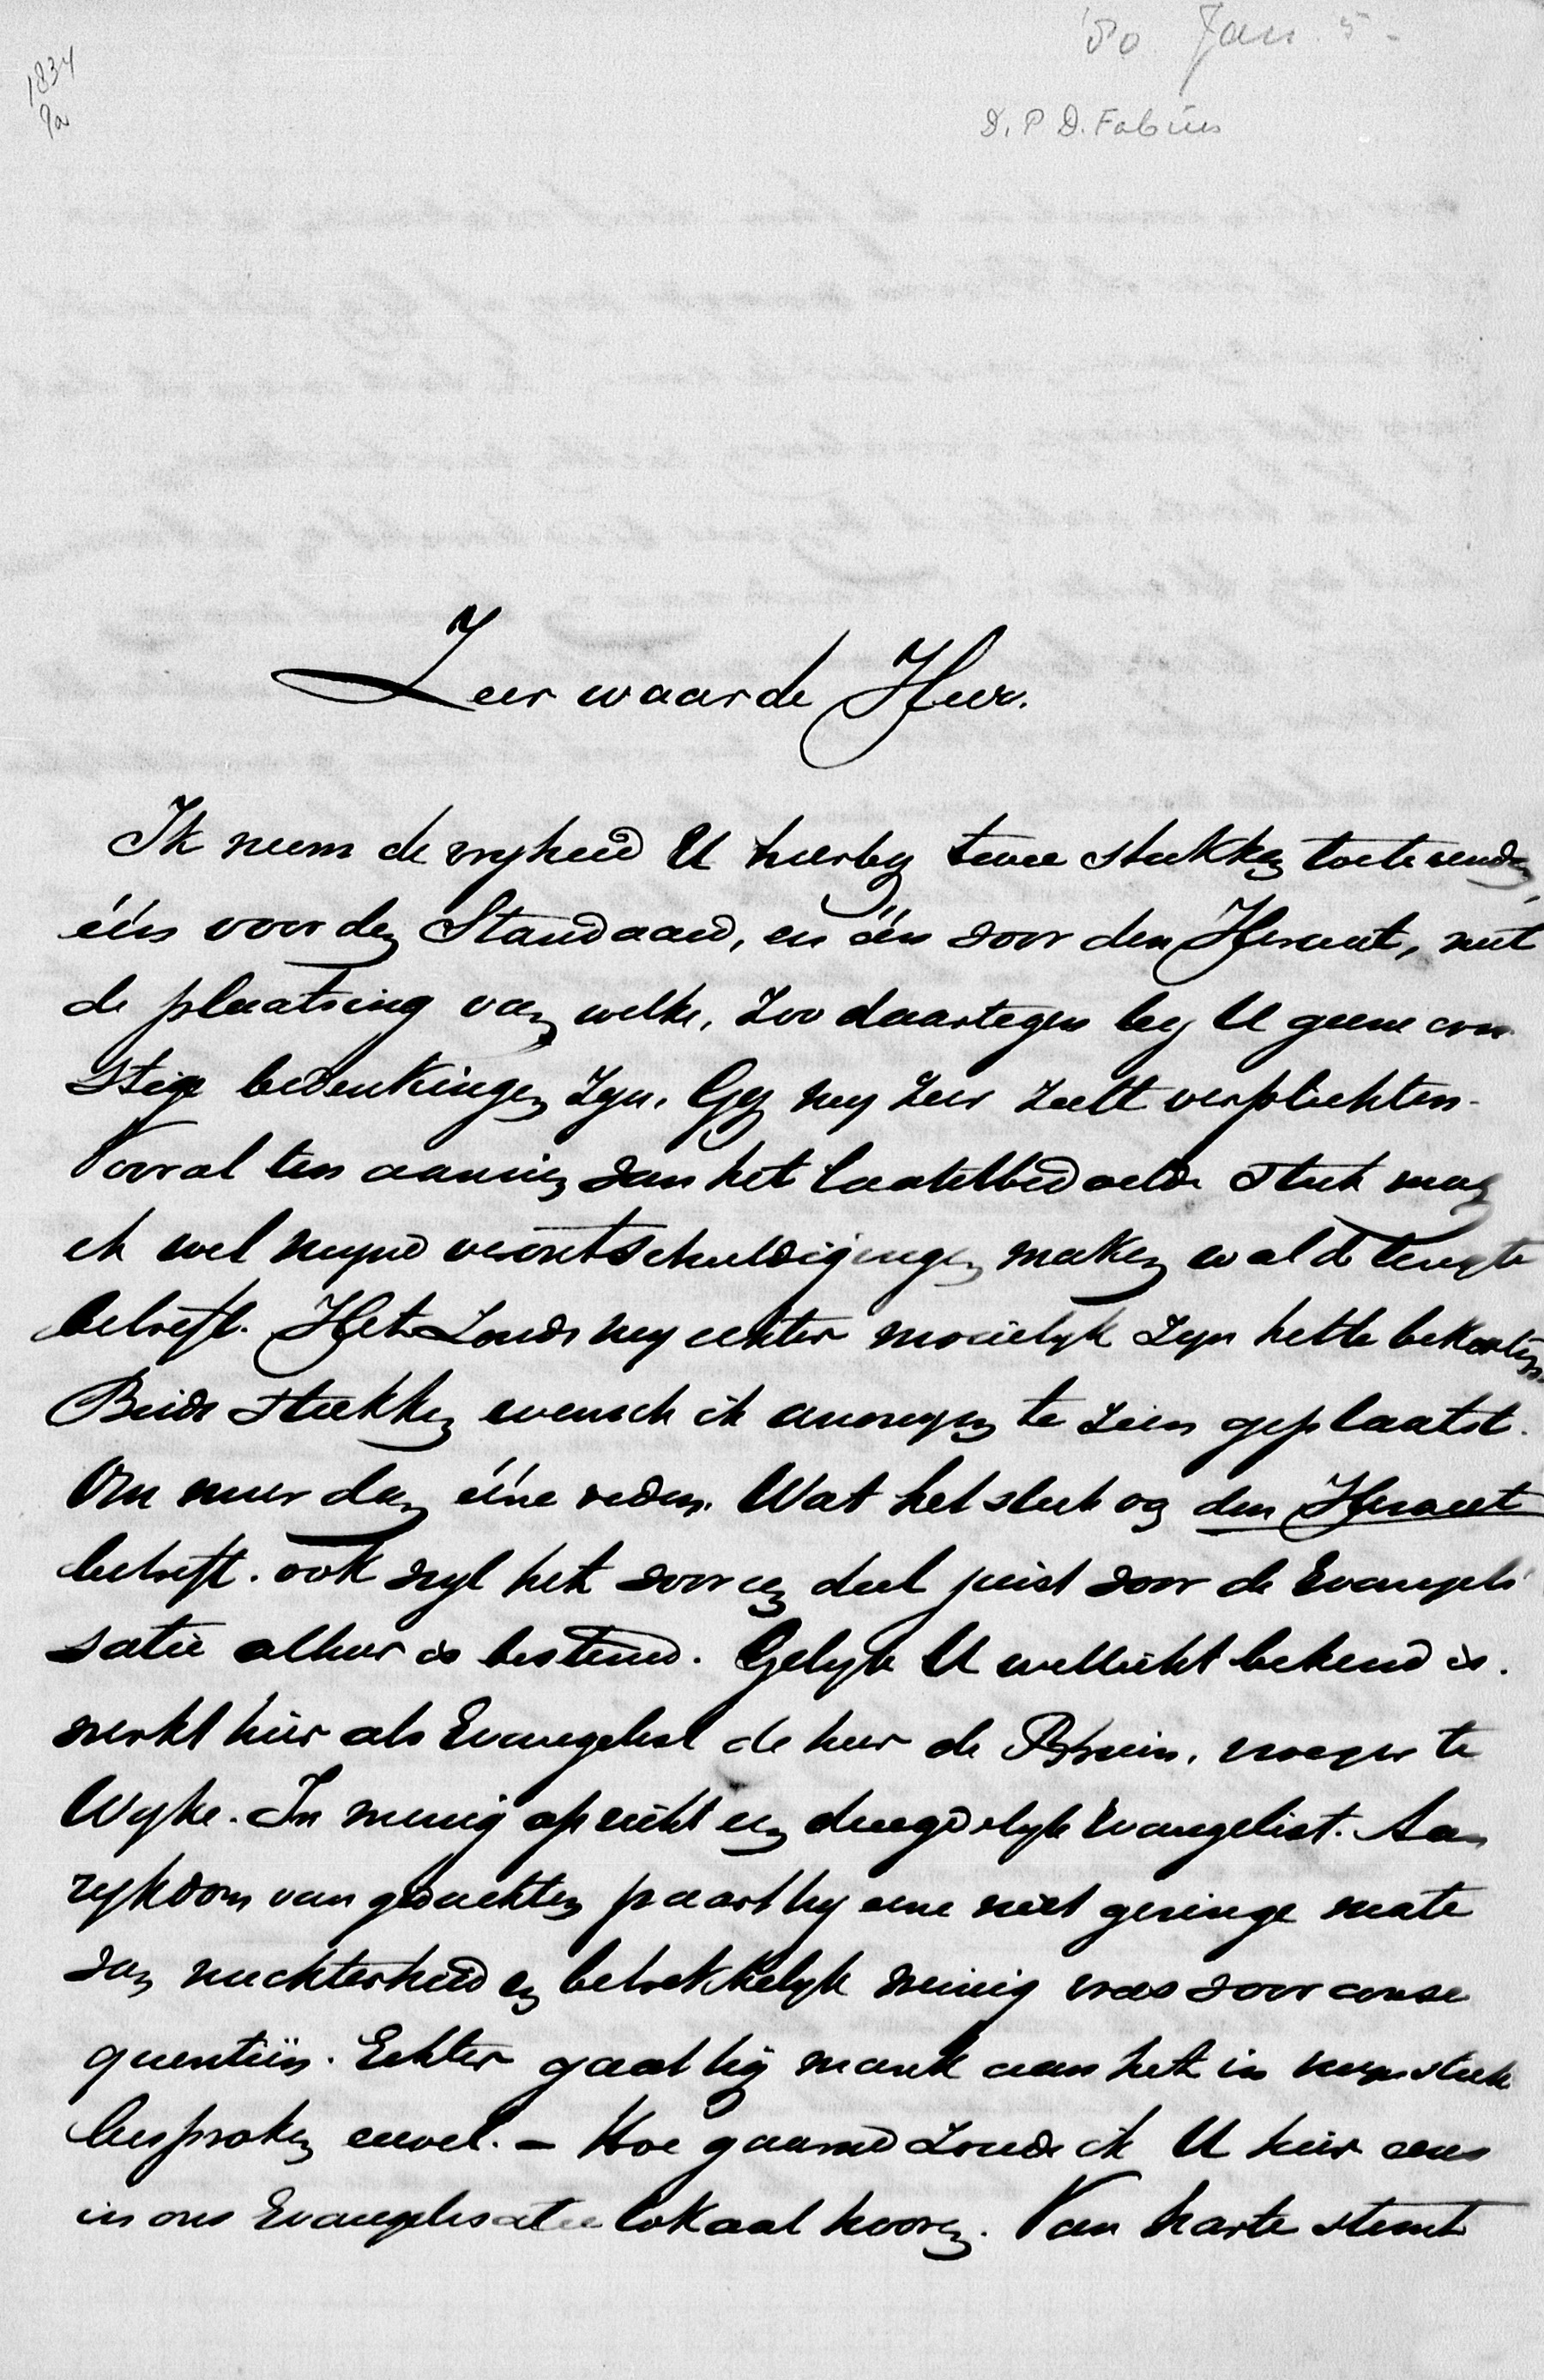 '80 Jan. 5-
1834
9a
D. P. D. Fabius
Zeer waarde Heer.
Ik neem de vryheid U hierby twee stukken toetezenden,
één voor den Standaard, en één voor den Heraut, met
de plaatsing van welke, zoo daartegen by U geene ern
stige bedenkingen zyn, Gy my zeer zult verplichten.
Vooral ten aanzien van het laatstbedoelde stuk mag
ik wel mijne verontschuldigingen maken wat de lengte
betreft. Het zoude my echter moeielyk zyn het te bekorten.
Beide stukken wensch ik anonym te zien geplaatst.
Om meer dan ééne reden. Wat het stuk og den Heraut
betreft. ook wyl het voor een deel juist voor de Evangeli
satie alhier is bestemd. Gelyk U wellicht bekend is.
werkt hier als Evangelist de heer de Bruin, vroeger te
Wyke. In menig opzicht een deugdelyk Evangelist. Aan
rykdom van gedachten paart hy eene niet geringe mate
van nuchterheid en betrekkelyk weinig vrees voor conse
quentiën. Echter gaat hy mank aan het in myn stuk
besproken euvel. - Hoe gaarne zoude ik U hier eens
in ons Evangelisatie lokaal hooren. Van harte stemt